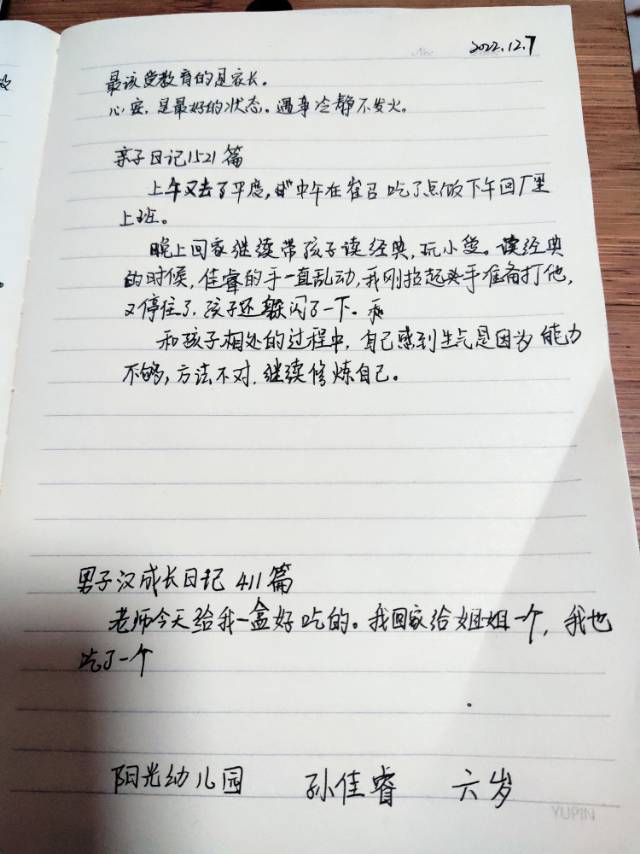 No.
2022.12.7
最该受教育的是家长。
心安,是最好的状态。遇事冷静不发火。
亲子日记1521篇
上午又去了平度,中午在崔召吃了点饭下午回厂里
上班。
晚上回家继续带孩子读经典,玩小爱。读经典
的时候,佳睿的手一直乱动,我刚拉起头手准备打他,
又停住了,孩子还躲闪了一下。
和孩子相处的过程中,自己感到生气是因为能力
不够,方法不对,继续修炼自己。
男子汉成长日记 411篇
老师今天给我一盒好吃的。我回家给姐姐一个,我也
吃了一个
阳光幼儿园 孙佳睿 六岁
YUPIN